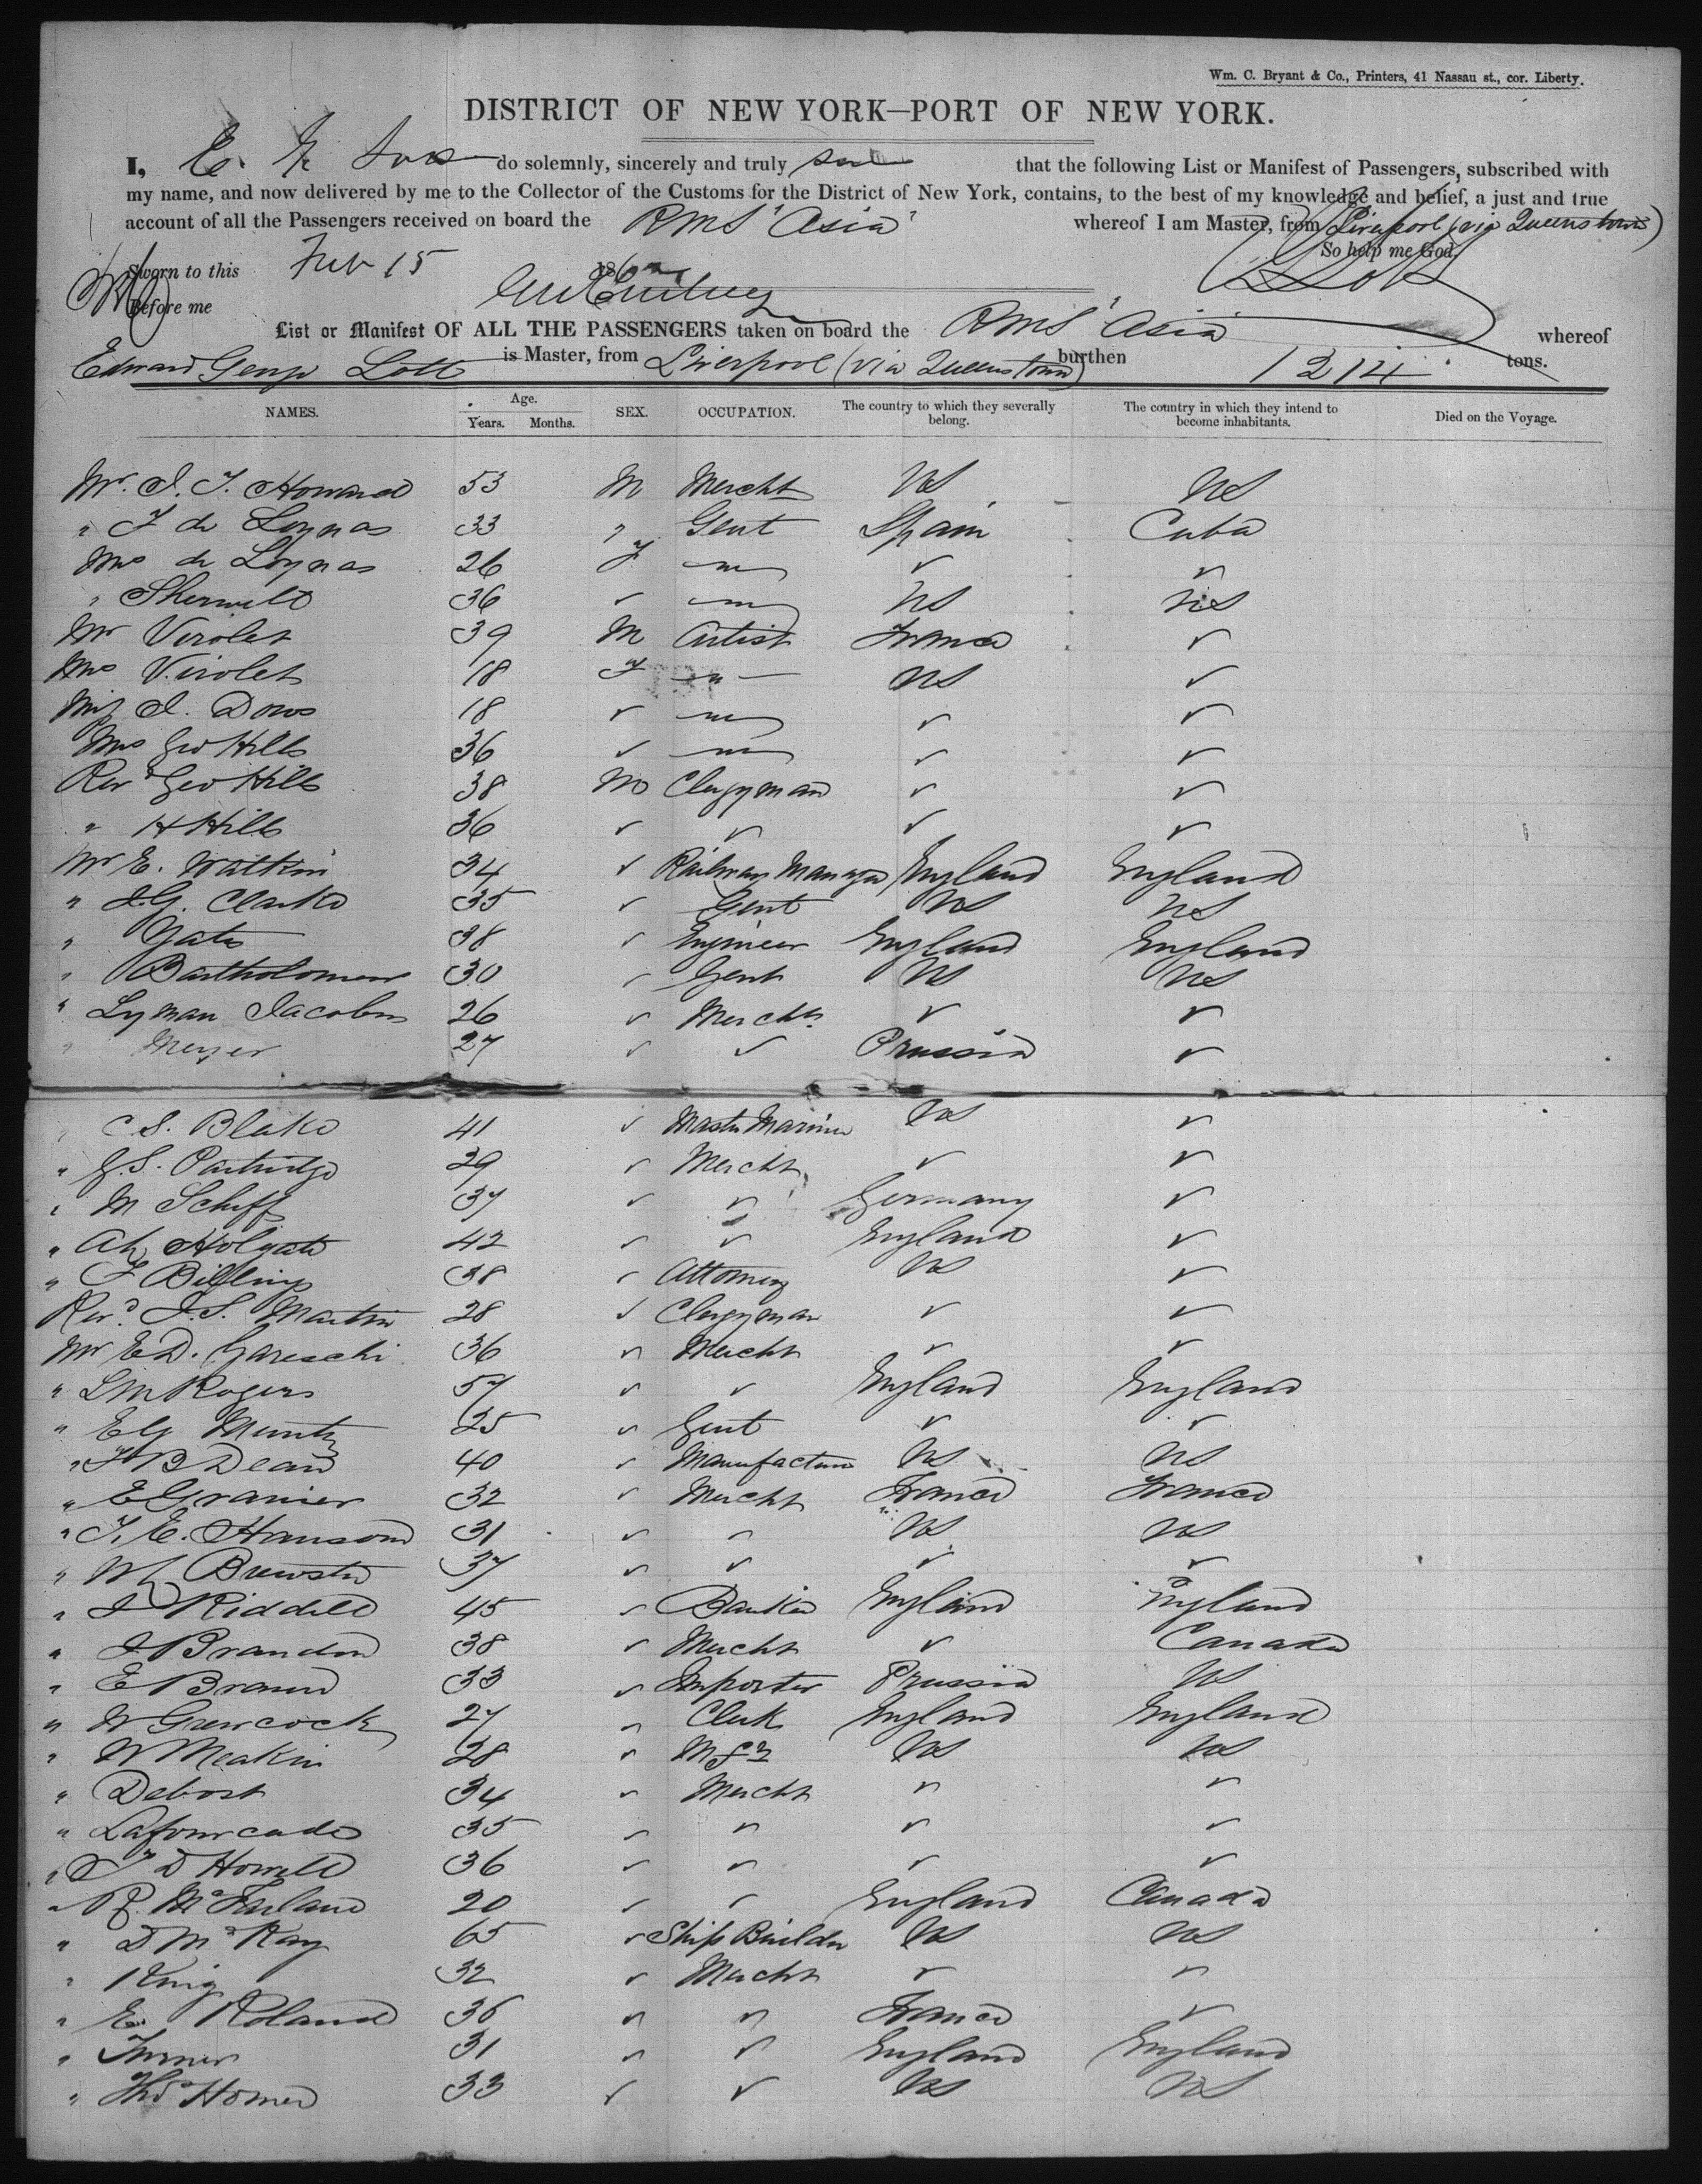 Wm. C. Bryant & Co., Printers, 41 Nassau st., cor. Liberty.
DISTRICT OF NEW YORK—PORT OF NEW YORK.
I, E. G. Lott do solemnly, sincerely and truly that the following List or Manifest of Passengers, subscribed with
my name, and now delivered by me to the Collector of the Customs for the District of New York, contains, to the best of my knowledge and belief, a just and true
account of all the Passengers received on board the RMS "Asia" whereof I am Master, from Liverpool (via Queenstown)
So help me God.
Sworn to this Feb 15 186
Before me
E G Lott
List or Manifest OF ALL THE PASSENGERS taken on board the RMS "Asia" whereof
Edward George Lott is Master, from Liverpool (via Queenstown) burthen 1214 tons.
NAMES. Age. Years. Months. SEX. OCCUPATION. The country to which they severally belong. The country in which they intend to become inhabitants. Died on the Voyage.
Mr. J. T. Howard 53 M Mercht US US
" F de Loynas 33 " Gent Spain Cuba
Mrs de Loynas 26 F — ✓ ✓
" Sherwilt 36 ✓ — US US
Mr Virolet 39 M Artist France ✓
Mrs Virolet 18 F — " — US ✓
Miss J. Dows 18 ✓ — ✓ ✓
Mrs Geo Hills 36 ✓ — ✓ ✓
Revd Geo Hills 38 M Clergyman ✓ ✓
" H Hills 36 ✓ ✓ ✓ ✓
Mr E. Watkin 34 ✓ Railway Manager England England
" J.G. Clarke 35 ✓ Gent US US
" Yates 38 ✓ Engineer England England
" Bartholomew 30 ✓ Gent US US
" Lyman Jacobs 26 ✓ Mercht ✓ ✓
" Meyer 27 ✓ ✓ Prussia ✓
" C S. Blake 41 ✓ Master Mariner US ✓
" G.S. Partridge 29 ✓ Mercht ✓ ✓
" M Schiff 37 ✓ ✓ Germany ✓
" Ah Holgate 42 ✓ ✓ England ✓
" F Billings 38 ✓ Attorney US ✓
Revd. J.S. Martin 28 ✓ Clergyman ✓ ✓
Mr E D. Gareschi 36 ✓ Mercht ✓ ✓
" S M Rogers 57 ✓ ✓ England England
" E G Muntz 25 ✓ Gent ✓ ✓
" F B Dean 40 ✓ Manufacturer US US
" E Granier 32 ✓ Mercht France France
" T. E. Hanson 31 ✓ ✓ US US
" Brewster 37 ✓ ✓ ✓ ✓
" J Riddell 45 ✓ Banker England England
" J Brandon 38 ✓ Mercht ✓ Canada
" E Braun 33 ✓ Importer Prussia US
" W Grewcock 27 ✓ Clerk England England
" W Meakin 28 ✓ Mfr US US
" Debost 34 ✓ Mercht ✓ ✓
" Lafourcade 35 ✓ ✓ ✓ ✓
" F D Howell 36 ✓ ✓ ✓ ✓
" R McFarland 20 ✓ ✓ England Canada
" D McKay 65 ✓ Ship Builder US US
" King 32 ✓ Mercht ✓ ✓
" E Roland 36 ✓ ✓ France ✓
" Turner 31 ✓ ✓ England England
" Thos Homer 33 ✓ ✓ US US